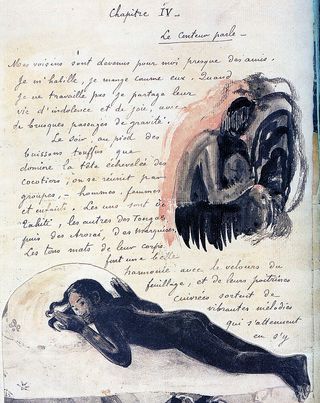 Chapitre IV_
Le Conteur parle_
Mes voisins sont devenus pour moi presque des amis.
Je m'habille, je mange comme eux. Quand
je ne travaille pas je partage leur
vie d'indolence et de joie, avec
de brusques passages de gravité.
Le soir, au pied des
buissons touffus que
domine la tête échevelée des
cocotiers, on se réunit par
groupes, _ hommes, femmes
et enfants. Les uns sont de
Tahiti, les autres des Tongas
puis des Arorai, des Marquises.
Les tons mats de leur corps
font une belle
harmonie avec le velours du
feuillage, et de leurs poitrines
cuivrées sortent de
vibrantes mélodies
qui s'atténuent
en s'y